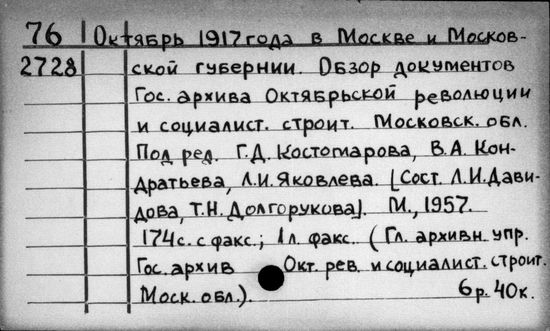 76 Октябрь 1917 года в Москве и Москов-
2728 ской губернии. Обзор документов
Гос. архива Октябрьской революции
и социалист. строит. Московск. обл.
Под ред. Г.Д. Костомарова, В.А. Кон-
дратьева, Л.И. Яковлева. [Сост. Л.И. Дави-
дова, Т.Н. Долгорукова]. М., 1957.
174 с. с факс.; 1 л. факс. (Гл. архивн. упр.
Гос. архив Окт. рев. и социалист. строит.
Моск. обл.). 6 р. 40 к.